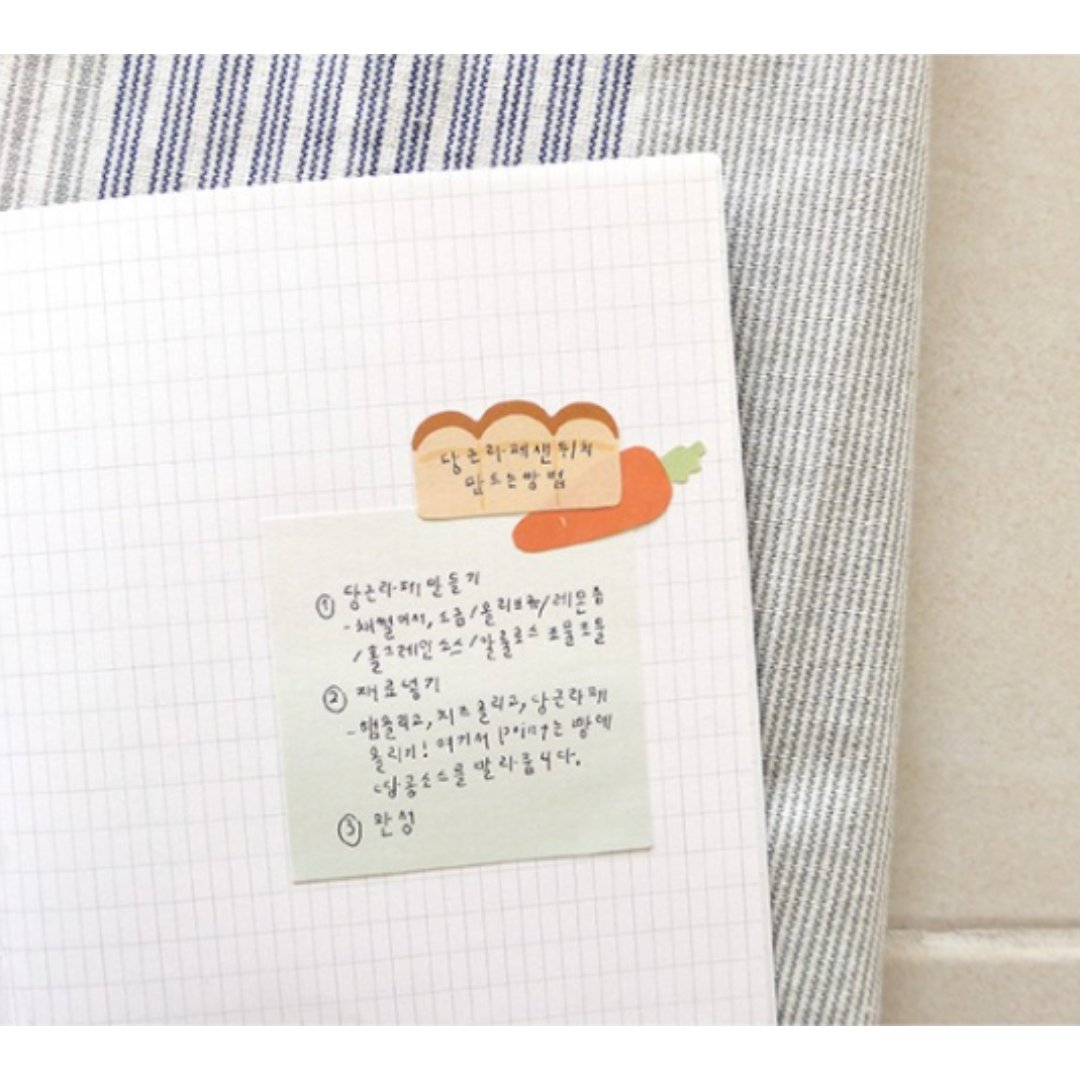 당근라페샌위치
만드는방법
① 당근라페만들기
- 채썰어서, 소금/올리브유/레몬즙
/홀그레인소스/알룰로스 조물조물
② 재료넣기
- 햄올리고, 치즈올리고, 당근라페
올리기! 여기서 point는 빵에
땅콩소스를 발라줍니다.
③ 완성